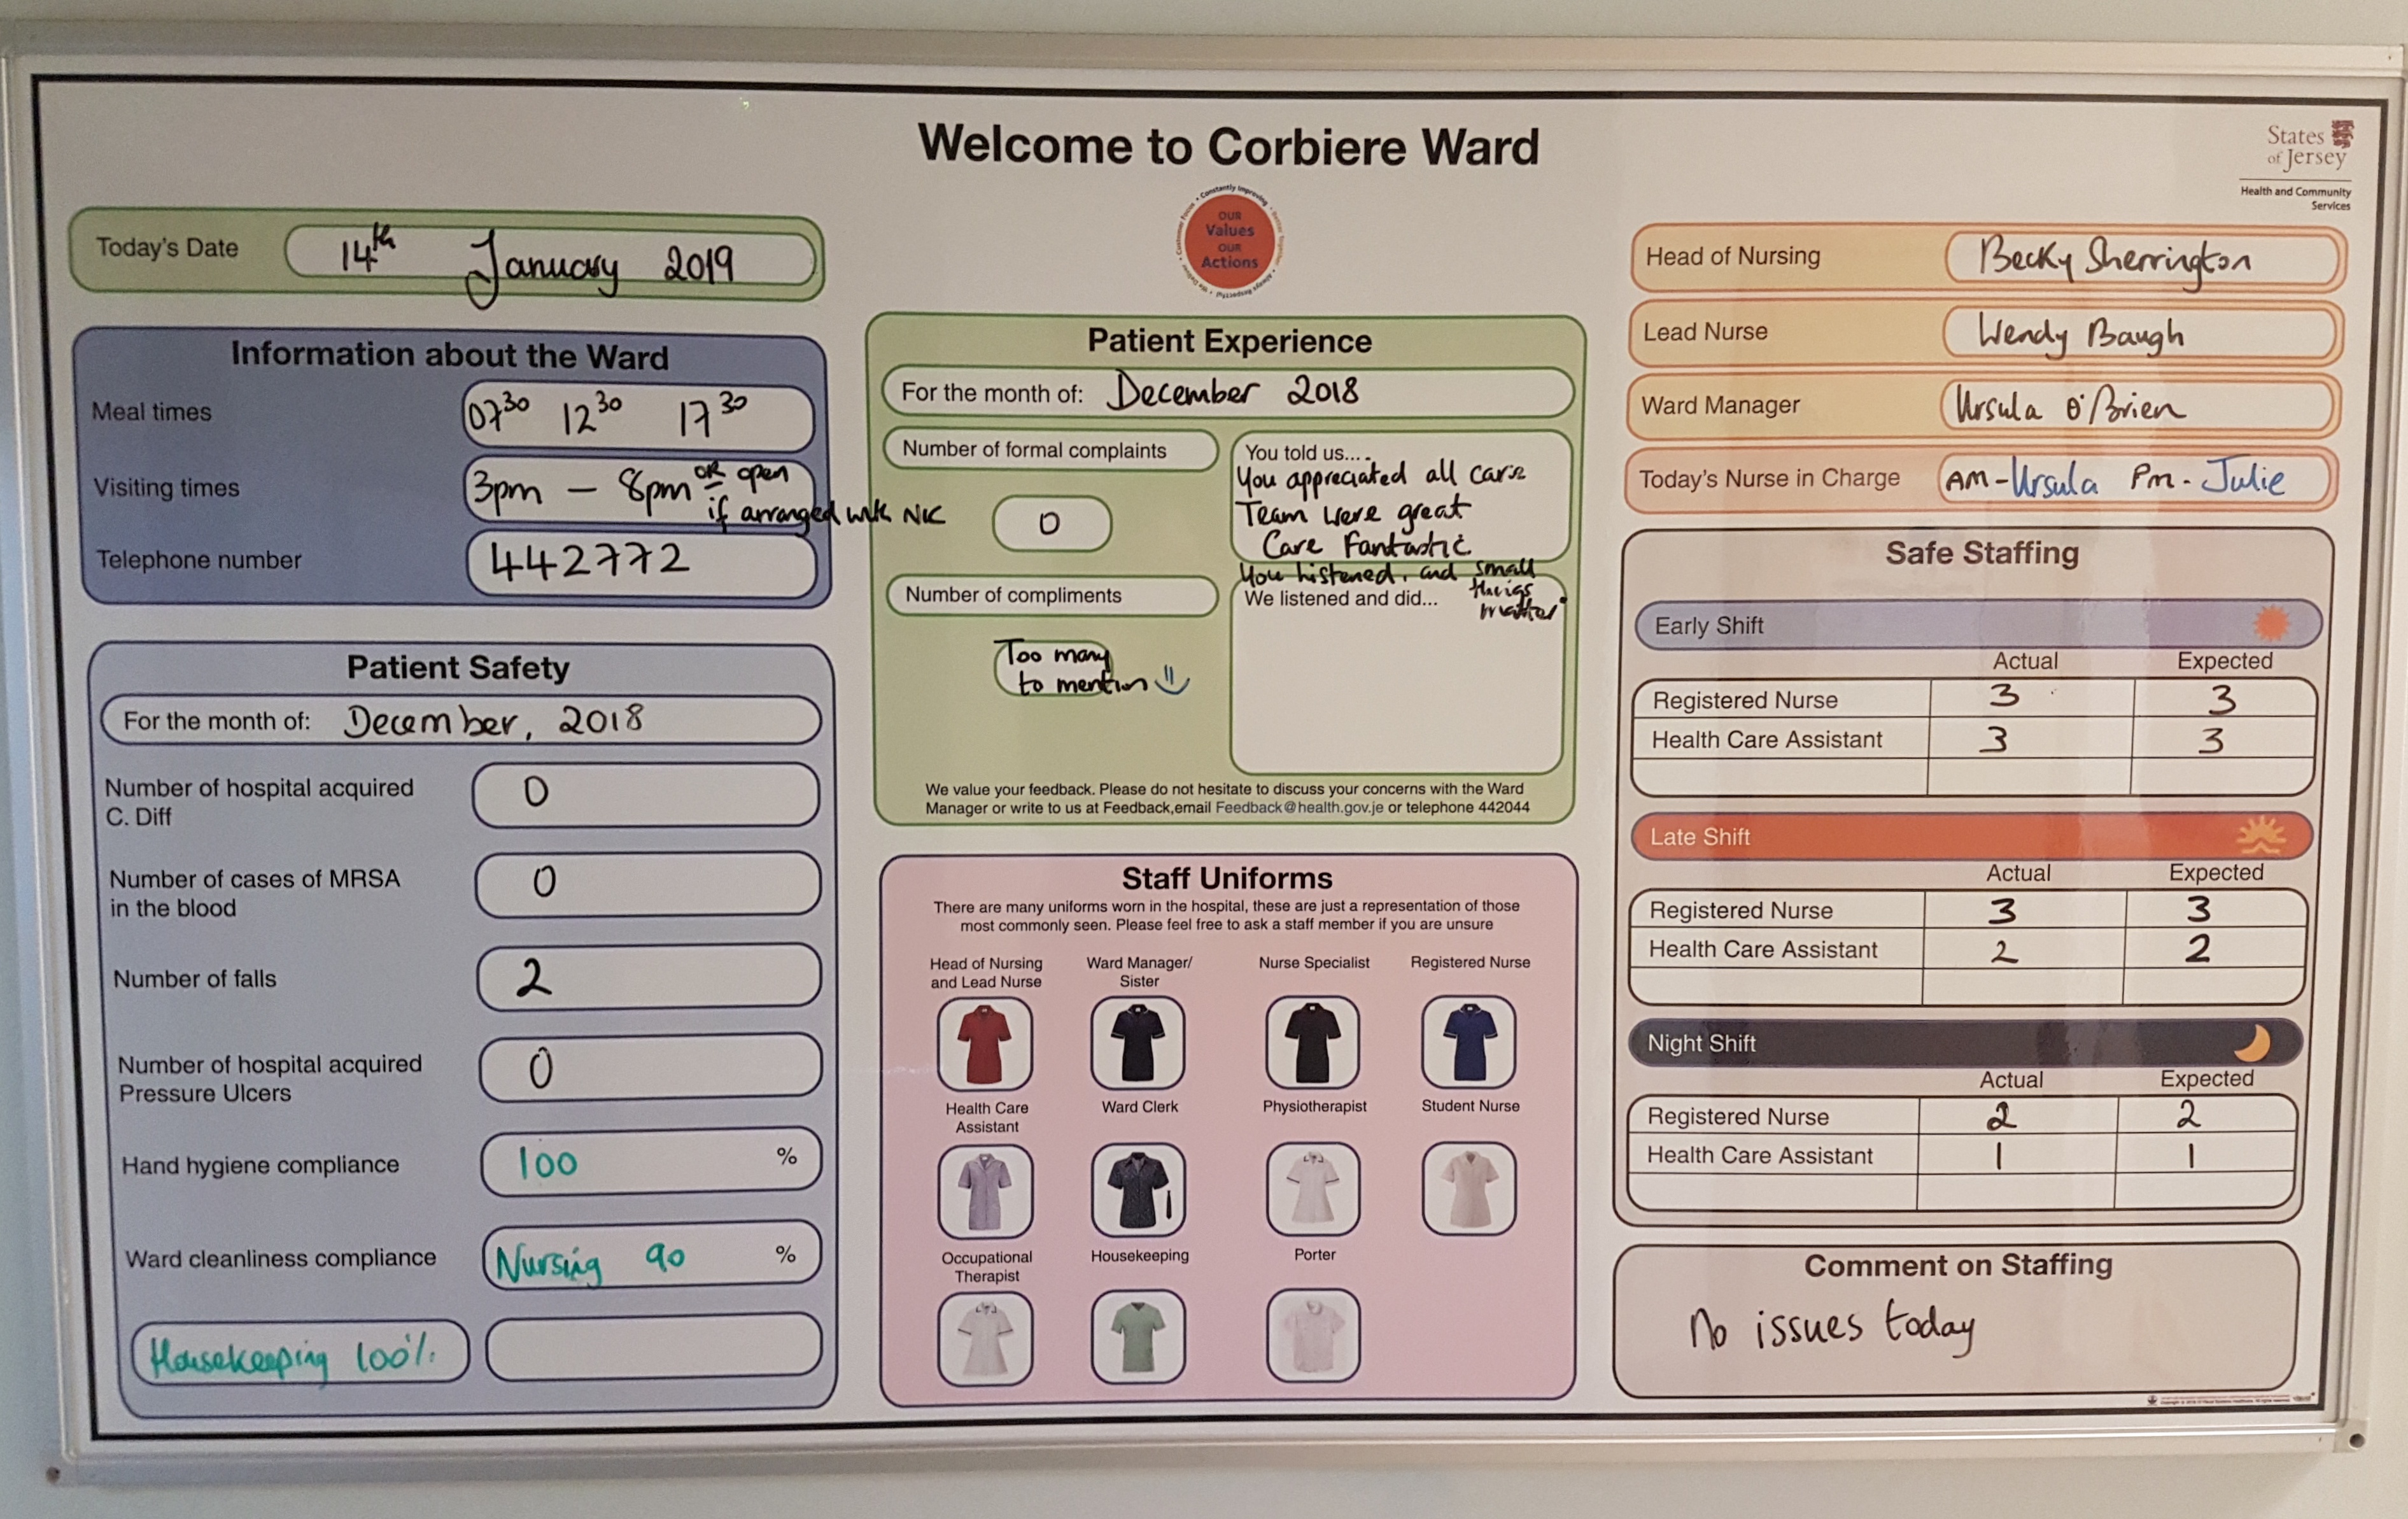 Welcome to Corbiere Ward
States
of Jersey
Health and Community
Services
Constantly Improving
OUR
Values
OUR
Actions
Always Respectful
Customer Focus
Today's Date 14th January 2019
Information about the Ward
Meal times 07 30 12 30 17 30
Visiting times 3pm – 8pm OR open
if arranged with NIC
Telephone number 442772
Patient Safety
For the month of: December, 2018
Number of hospital acquired
C. Diff 0
Number of cases of MRSA
in the blood 0
Number of falls 2
Number of hospital acquired
Pressure Ulcers 0
Hand hygiene compliance 100 %
Ward cleanliness compliance Nursing 90 %
Housekeeping 100%
Patient Experience
For the month of: December 2018
Number of formal complaints
0
Number of compliments
Too many
to mention
You told us....
You appreciated all care
Team were great
Care Fantastic
You listened, and small
things
matter
We listened and did...
We value your feedback. Please do not hesitate to discuss your concerns with the Ward
Manager or write to us at Feedback,email Feedback@health.gov.je or telephone 442044
Staff Uniforms
There are many uniforms worn in the hospital, these are just a representation of those
most commonly seen. Please feel free to ask a staff member if you are unsure
Head of Nursing
and Lead Nurse
Ward Manager/
Sister
Nurse Specialist
Registered Nurse
Health Care
Assistant
Ward Clerk
Physiotherapist
Student Nurse
Occupational
Therapist
Housekeeping
Porter
Head of Nursing Becky Sherrington
Lead Nurse Wendy Baugh
Ward Manager Ursula O'Brien
Today's Nurse in Charge AM - Ursula Pm - Julie
Safe Staffing
Early Shift
Actual Expected
Registered Nurse 3 3
Health Care Assistant 3 3
Late Shift
Actual Expected
Registered Nurse 3 3
Health Care Assistant 2 2
Night Shift
Actual Expected
Registered Nurse 2 2
Health Care Assistant 1 1
Comment on Staffing
No issues today